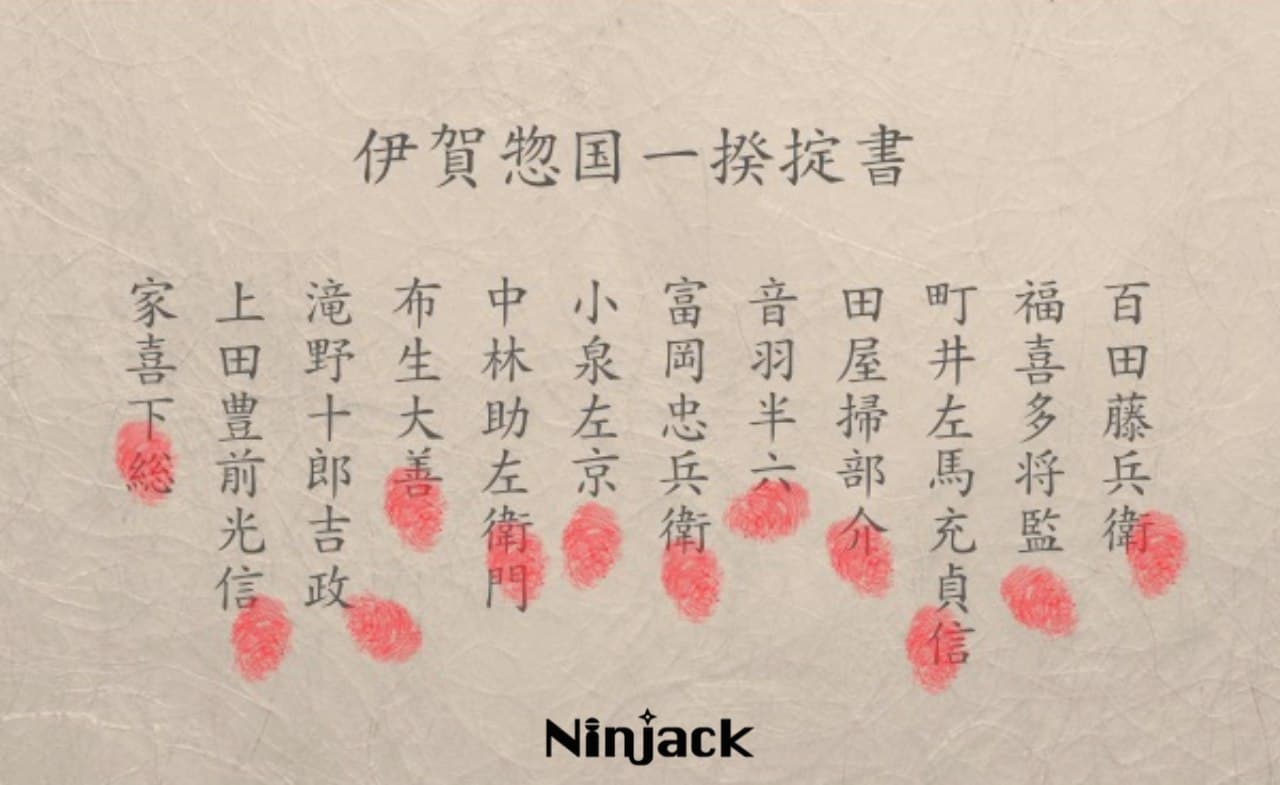 伊賀惣国一揆掟書
百田藤兵衛
福喜多将監
町井左馬充貞信
田屋掃部介
音羽半六
富岡忠兵衛
小泉左京
中林助左衛門
布生大善
滝野十郎吉政
上田豊前光信
家喜下総
Ninjack